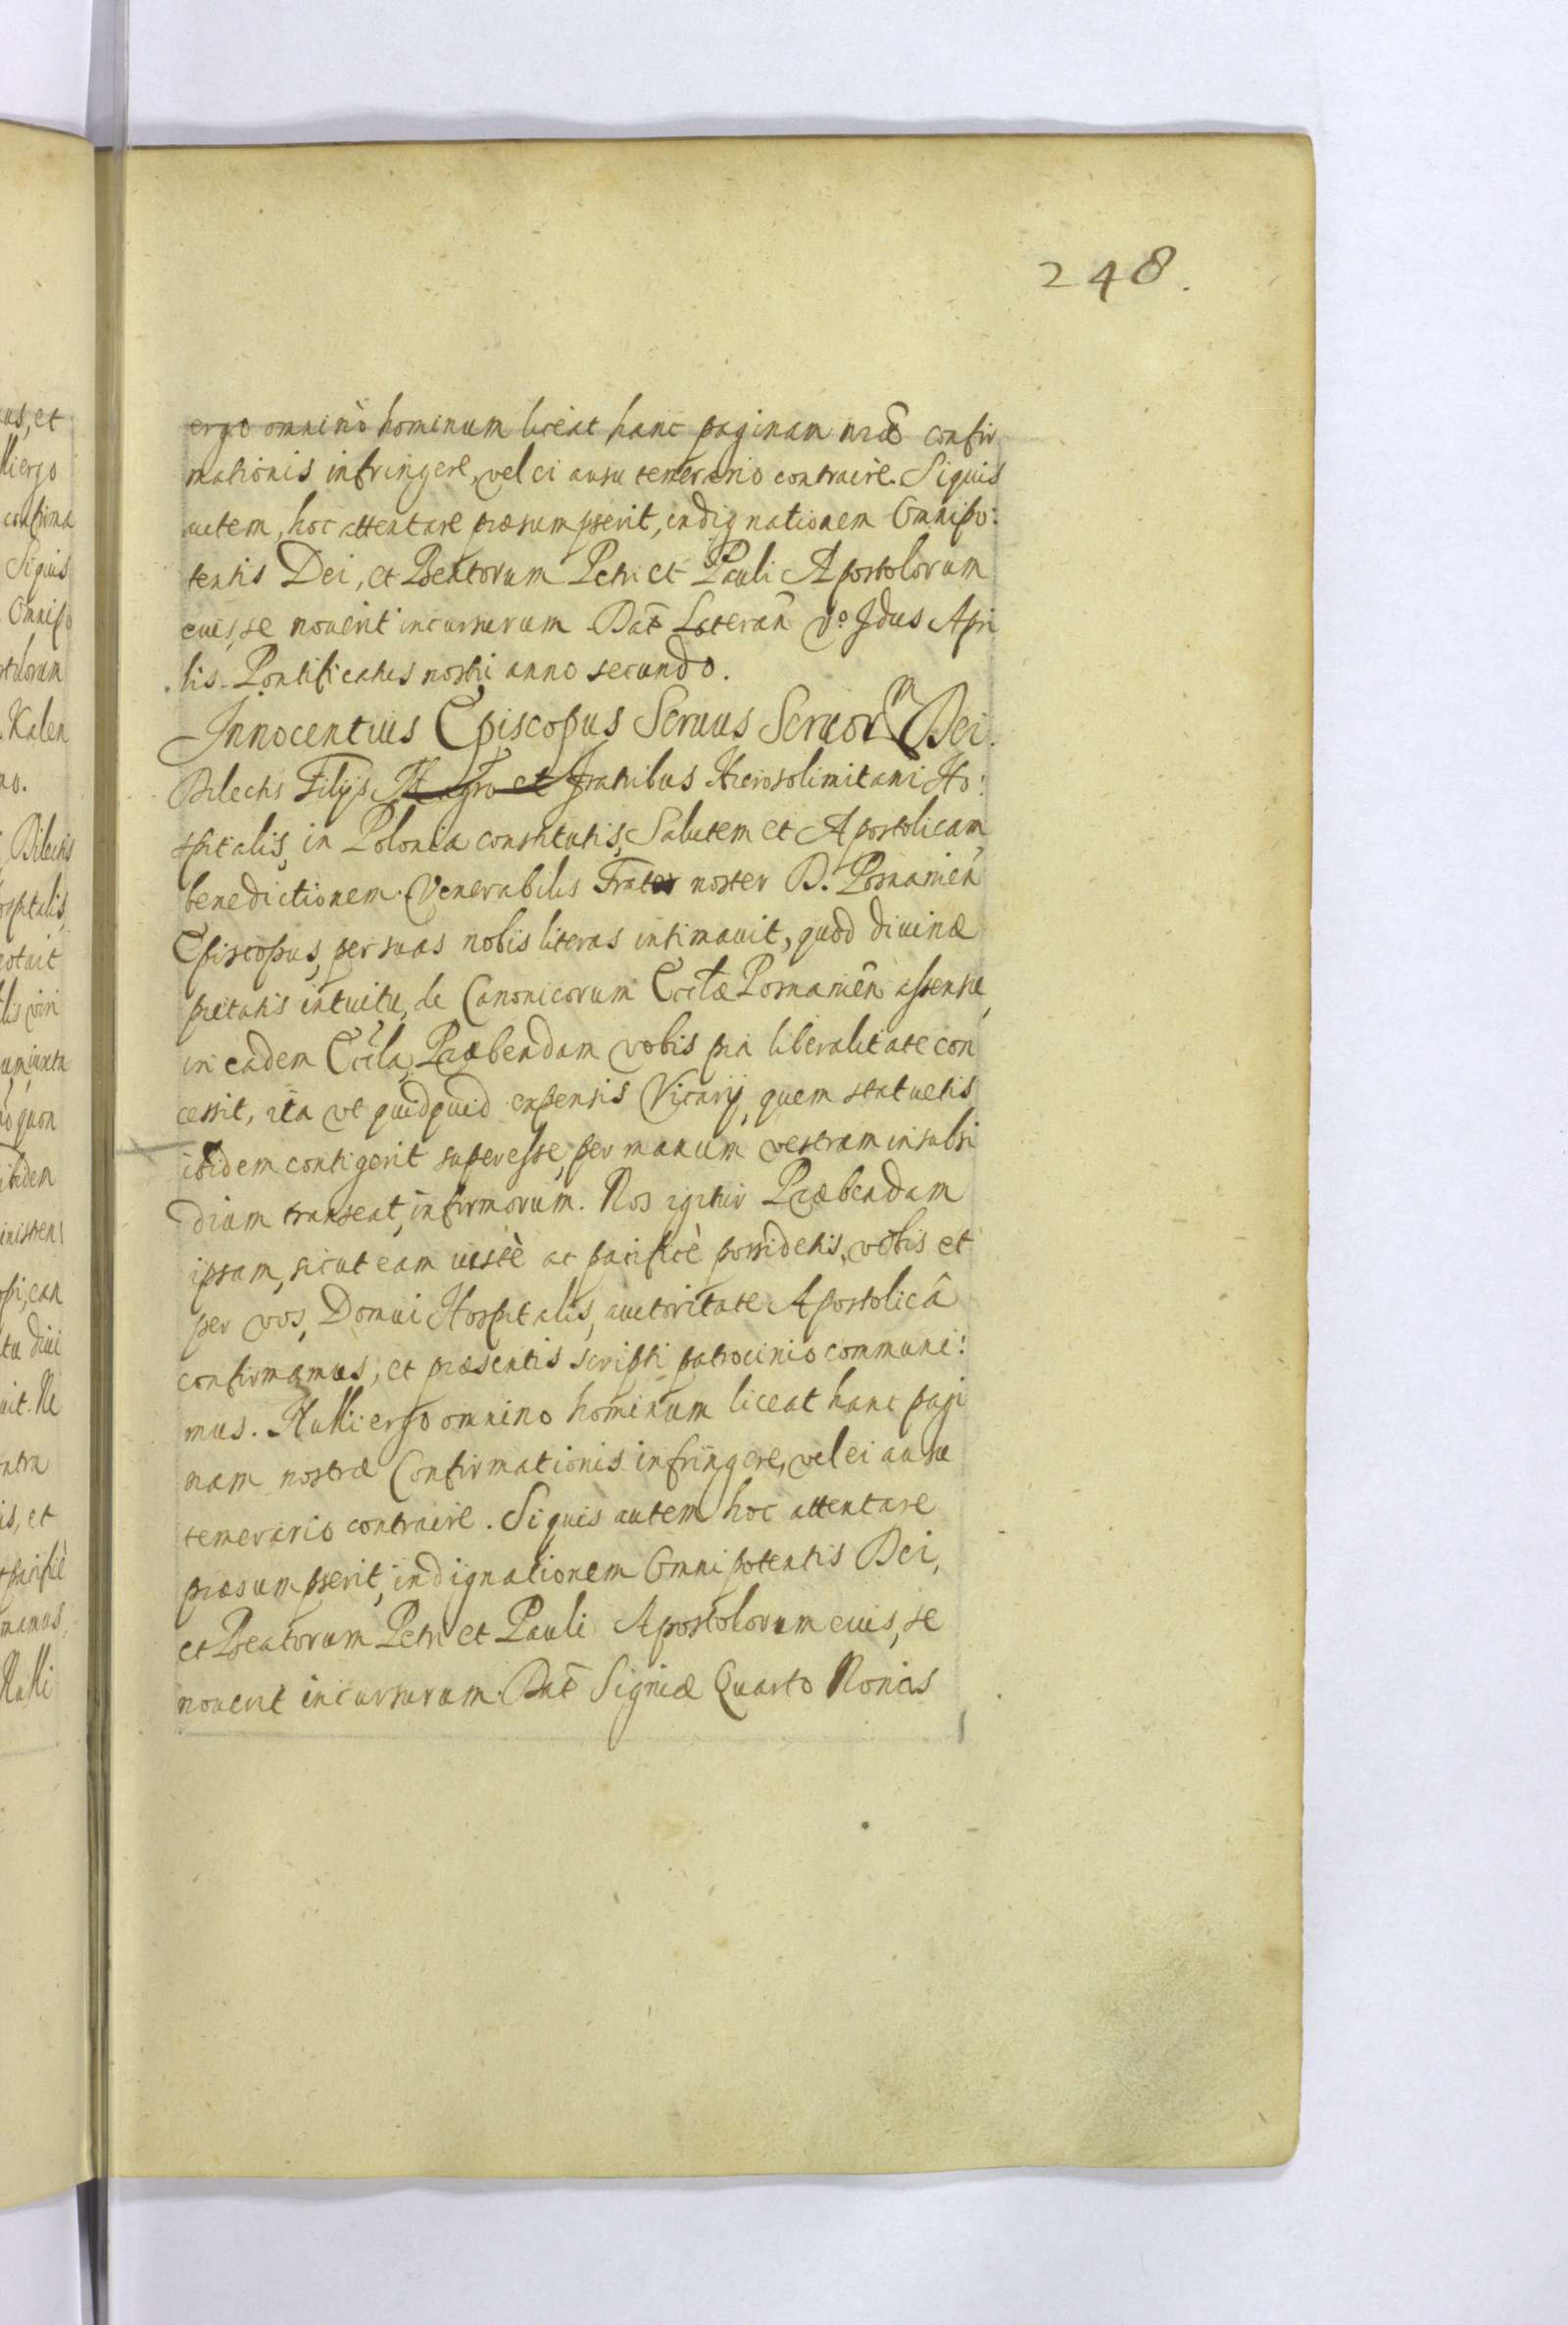 248.
ergo omninò hominum liceat hanc paginam nr̃æ confir
mationis infringere, vel ei ausu temerario contraire. Siquis
autem, hoc attentare præsumpserit, indignationem Omnipo:
tentis Dei, et Beatorum Petri et Pauli Apostolorum
eius, se nouerit incursurum Dat̃ Laterañ Vº Idus Apri
lis. Pontificatus nostri anno secundo.
Innocentius Episcopus Seruus Seruorm Dei.
Dilectis Filijs Magro et fratribus Hierosolimitani Ho:
spitalis, in Polonia constitutis, Salutem et Apostolicam
benedictionem. Venerabilis Frater noster B. Posnanień
Episcopus, per suas nobis literas intimauit, quod diuinæ
pietatis intuitu, de Canonicorum Ecclæ Posnanień assensu,
in eadem Eccla, Præbendam vobis pia liberalitate con
cessit, ita vt quidquid expensis Vicarij, quem statuetis
ibidem contigerit superesse, per manum vestram in subsi
dium transeat, infirmorum. Nos igitur Præbendam
ipsam, sicut eam iustè ac pacificè possidetis, vobis et
per vos, Domui Hospitalis, auctoritate Apostolicâ
confirmamus, et præsentis scripti patrocinio communi:
mus. Nulli ergo omnino hominum liceat hanc pagi
nam nostræ Confirmationis infringere, vel ei ausu
temerario contraire. Siquis autem hoc attentare
præsumpserit, indignationem Omnipotentis Dei,
et Beatorum Petri et Pauli Apostolorum eius, se
nouerit incursurum. Dat̃ Signiæ Quarto Nonas